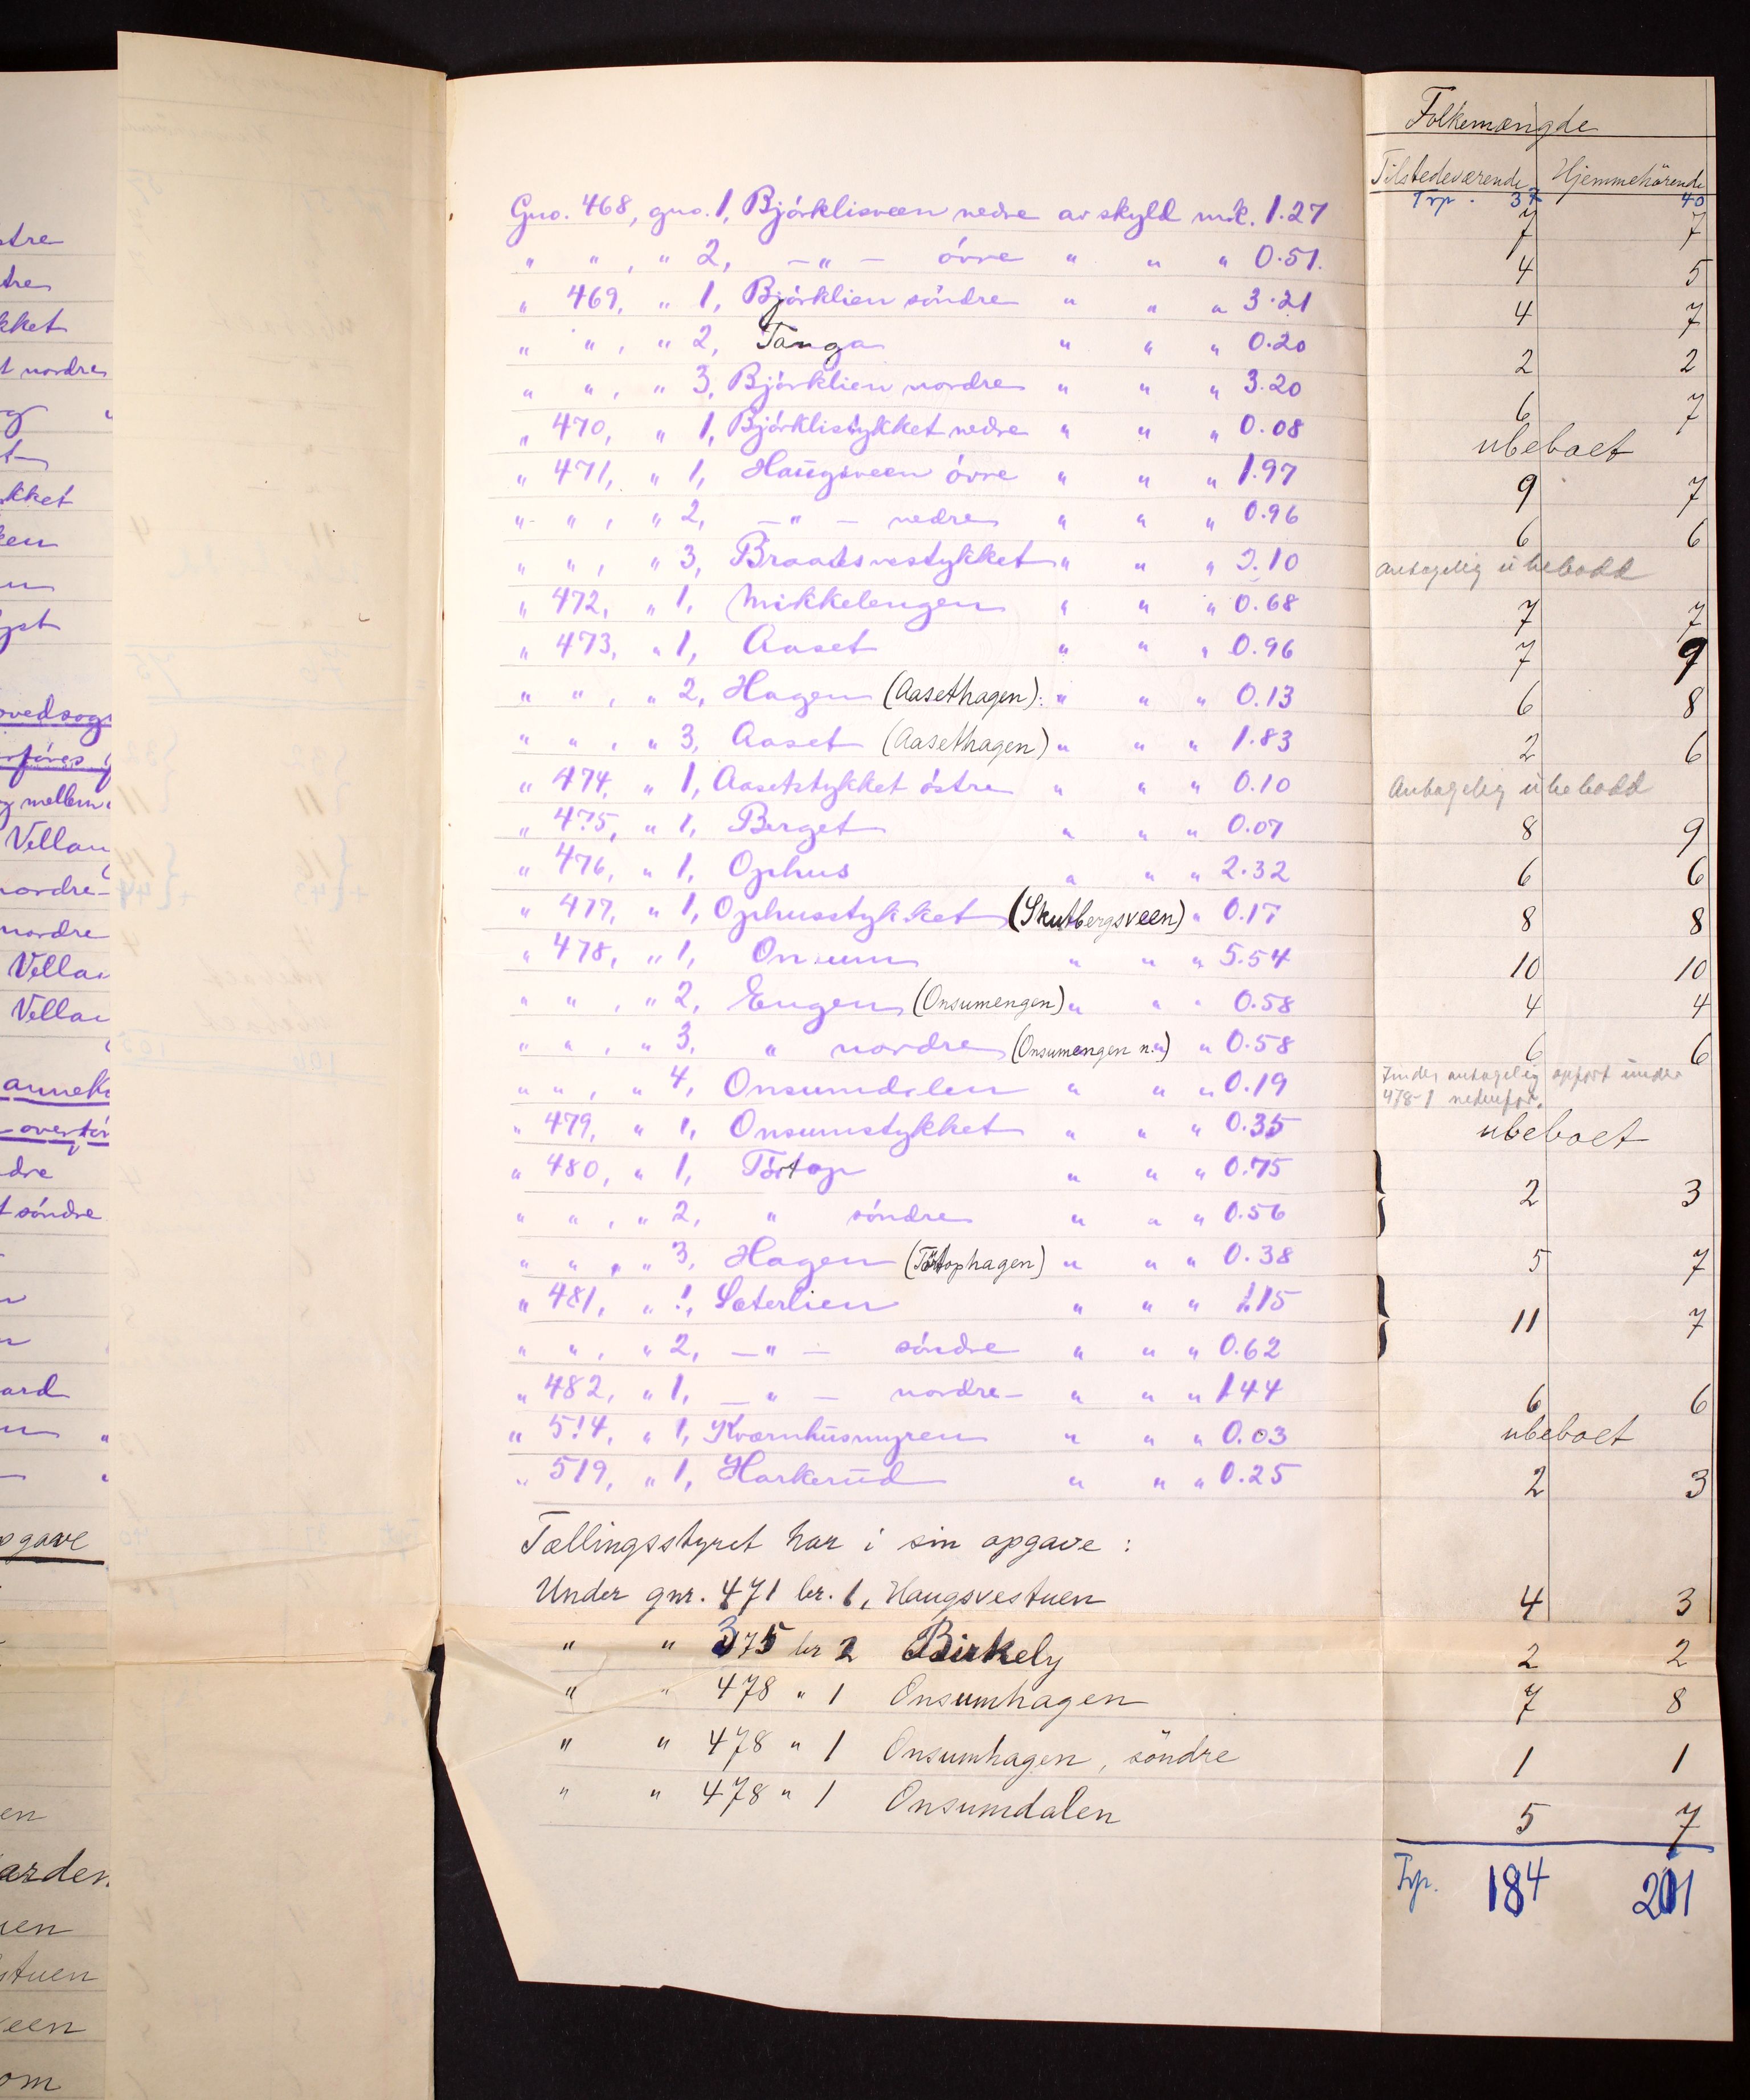 Folkemængde
Tilstedeværende Hjemmehörende
Trp. 37 40
Gno. 468, gno. 1, Bjórklisveen nedre av skyld mrk. 1.27 7 7
" " , " 2, —"— óvre " " " 0.51. 4 5
" 469, " 1, Bjórklien söndre " " " 3.21 4 7
" " , " 2, Tanga " " " 0.20 2 2
" " , " 3, Bjórklien nordre " " " 3.20 6 7
" 470, " 1, Bjórklistykket nedre " " " 0.08 ubeboet
" 471, " 1, Haugsveen óvre " " " 1.97 9 7
" " , " 2, —"— nedre " " " 0.96 6 6
" " , " 3, Braatsvestykket " " " 2.10 antagelig ubebodd
" 472, " 1, Mikkelengen " " " 0.68 7 7
" 473, " 1, Aaset " " " 0.96 7 9
" " , " 2, Hagen (Aasethagen): " " " 0.13 6 8
" " , " 3, Aaset (Aasethagen) " " " 1.83 2 6
" 474, " 1, Aasetstykket óstre " " " 0.10 Antagelig ubebodd
" 475, " 1, Berget " " " 0.07 8 9
" 476, " 1, Ophus " " " 2.32 6 6
" 477, " 1, Ophusstykket (Skutbergsveen) " 0.17 8 8
" 478, " 1, Onsum " " " 5.54 10 10
" " , " 2, Engen (Onsumengen) " " " 0.58 4 4
" " , " 3, " nordre (Onsumengen n.) " " 0.58 6 6
" " , " 4, Onsumdalen " " " 0.19 Findes antagelig opført under
478-1 nedenfor.
" 479, " 1, Onsumstykket " " " 0.35 ubeboet
" 480, " 1, Törtop " " " 0.75
" " , " 2, " söndre " " " 0.56 } 2 3
" " , " 3, Hagen (Törtophagen) " " " 0.38 5 7
" 481, " 1, Sæterlien " " " 1.15
" " , " 2, —"— söndre " " " 0.62 } 11 7
" 482, " 1, —"— nordre " " " 1.44 6 6
" 514, " 1, Kværnhusmyren " " " 0.03 ubeboet
" 519, " 1, Harkerud " " " 0.25 2 3
Tællingsstyret har i sin opgave :
Under gnr. 471 br. 1, Haugsvestuen 4 3
" " 375 br 2 Birkely 2 2
" " 478 " 1 Onsumhagen 7 8
" " 478 " 1 Onsumhagen, söndre 1 1
" " 478 " 1 Onsumdalen 5 7
Trp. 184 201